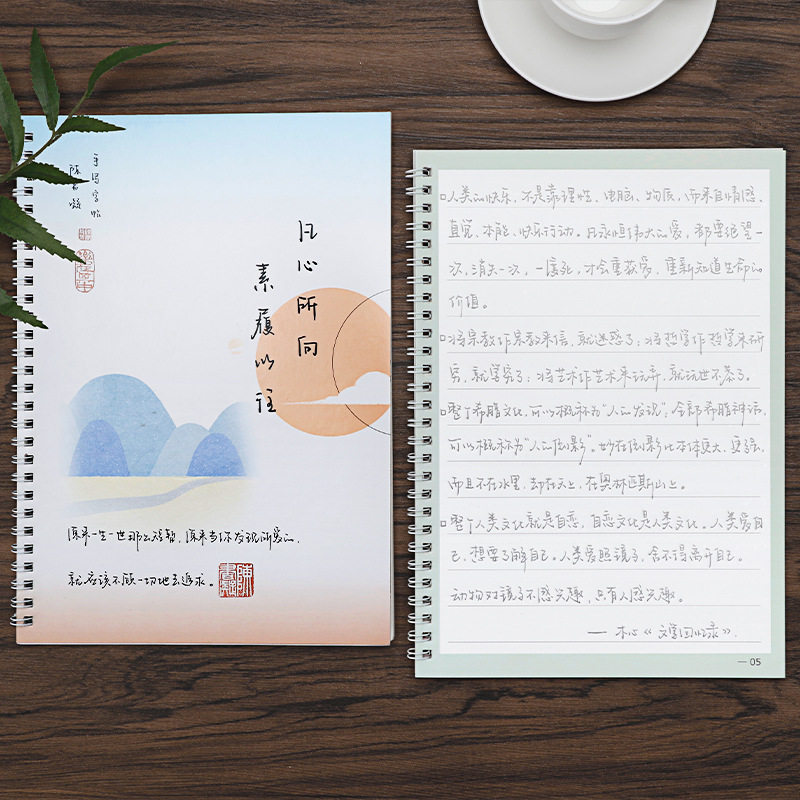 手写字帖
凡心所向
素履以往
原来一生一世那么短暂，原来当你发现所爱的，
就应该不顾一切地去追求。
□人类的快乐，不是靠理性、电脑、物质，而来自情感、
直觉、本能、快乐行动。凡永恒伟大的爱，都要绝望一
次，消失一次，一度死，才会重获爱，重新知道生命的
价值。
□将宗教作宗教来信，就迷惑了；将哲学作哲学来研
究，就学究了；将艺术作艺术来玩弄，就玩世不恭了。
□整个希腊文化，可以概称为“人的发现”；全部希腊神话，
可以概称为“人的倒影”。妙在倒影比本体更大，更强，
而且不在水里，却在天上，在奥林匹斯山上。
□整个人类文化就是自恋，自恋文化是人类文化。人类爱自
己，想要了解自己。人类爱照镜子，舍不得离开自己。
动物对镜子不感兴趣，只有人感兴趣。
—木心《文学回忆录》.
— 05